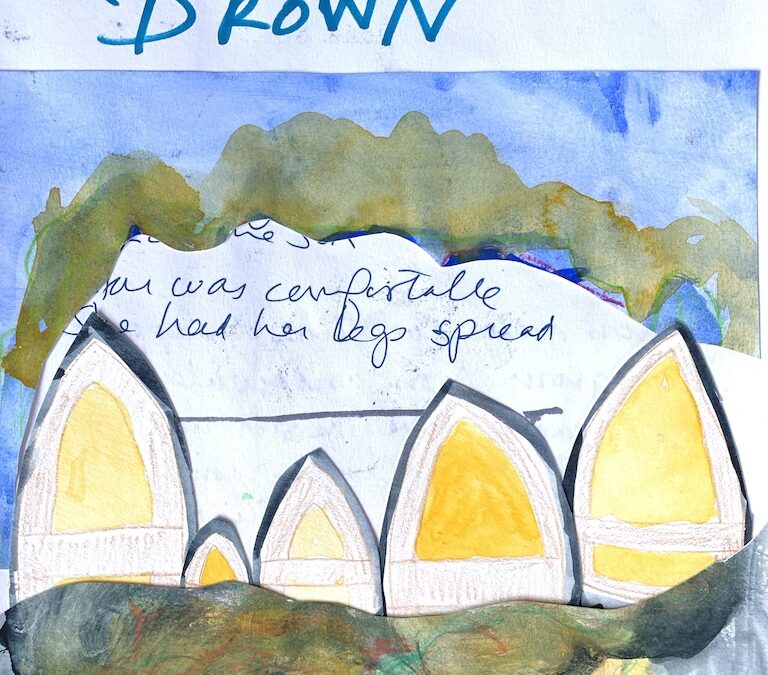 DROWN
the
was comfortable
She had her legs spread